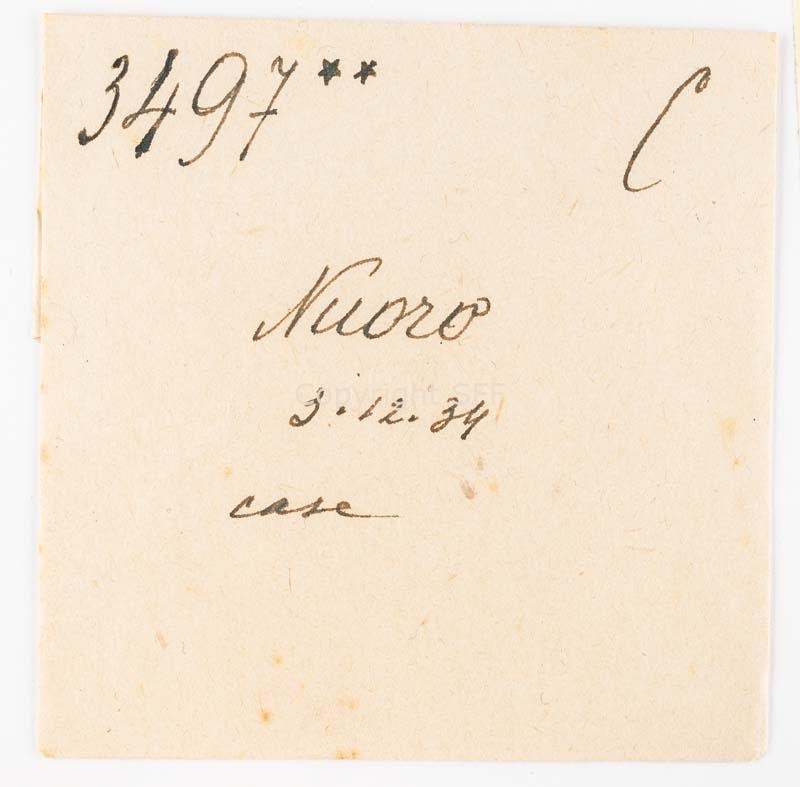 3497** C
Nuoro
Copyright SFF
3.12.34
case